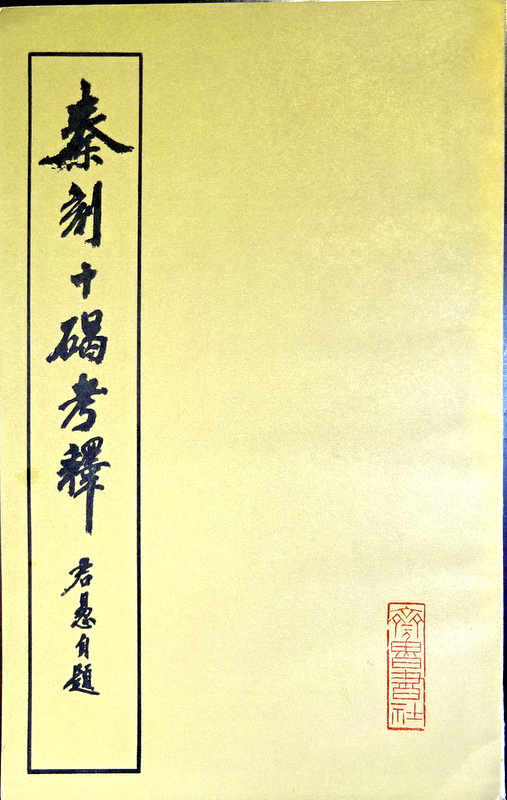 秦刻十碣考釋
君愚自題
齊魯書社